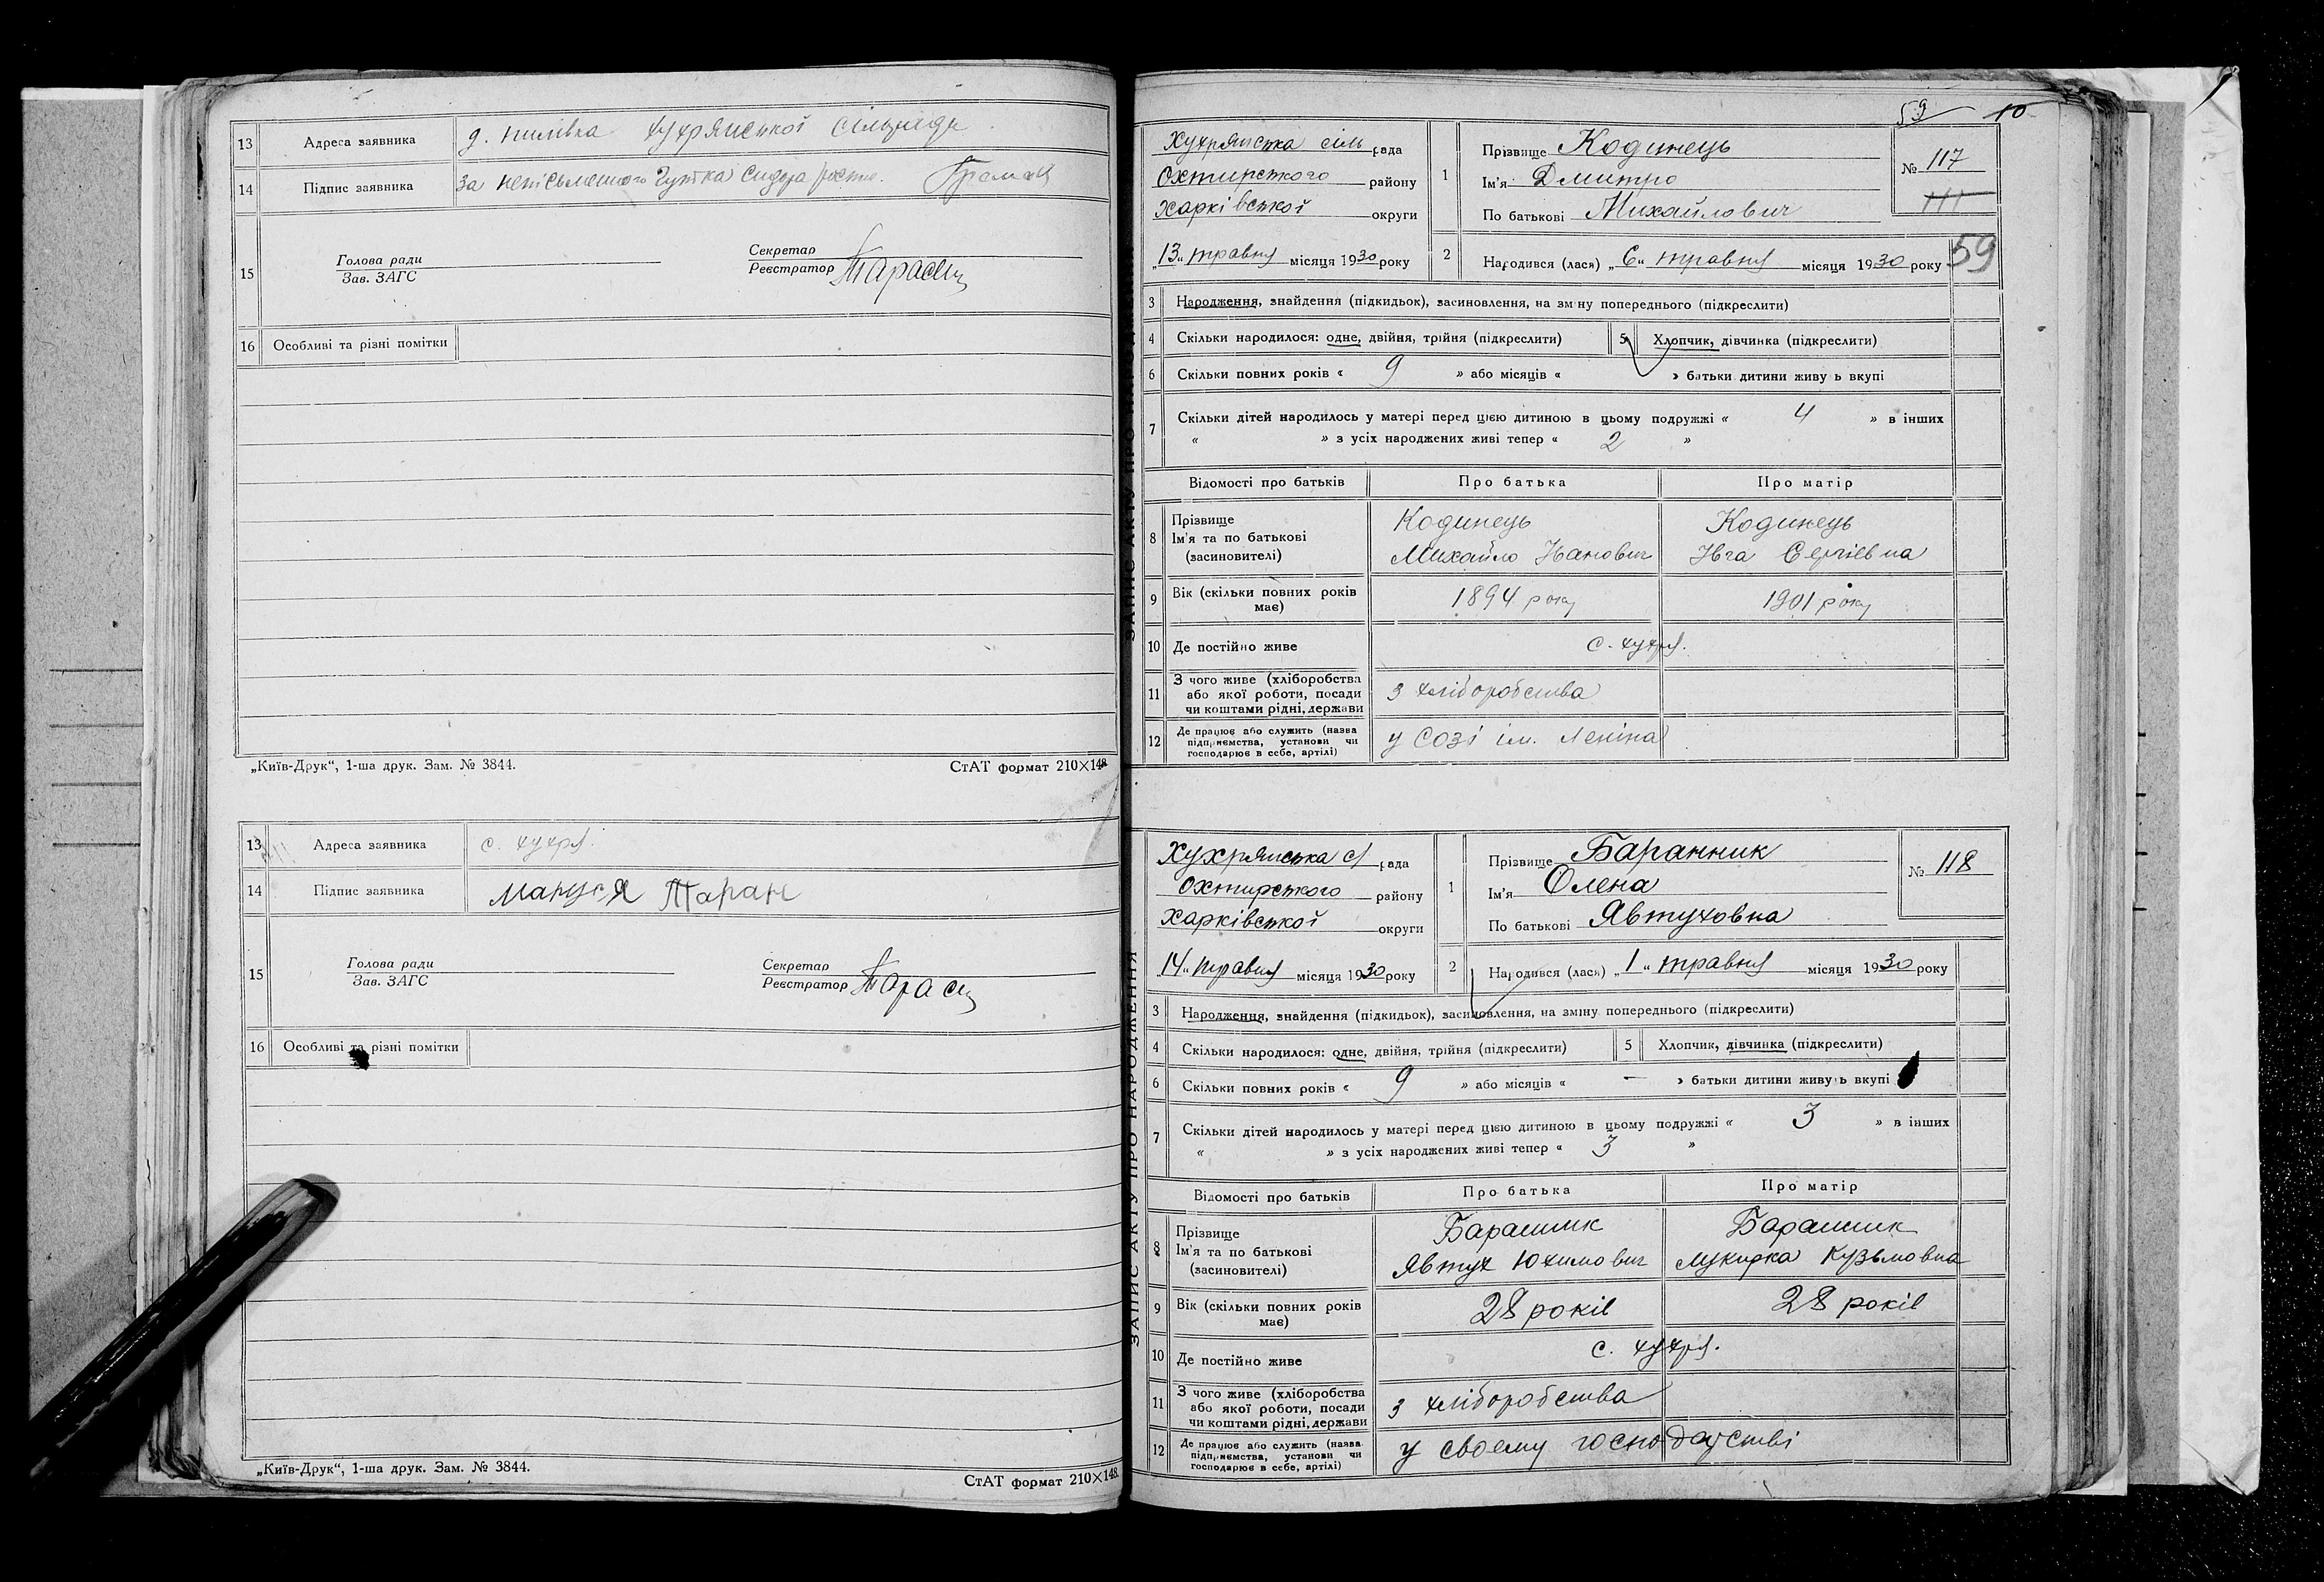 13 Адреса заявника д. Пилівка Хухрянської сільради
14 Підпис заявника За неписьменного Сидора
15 Голова ради
Зав. ЗАГС
Секретар
Реєстратор Тарасен
16 Особливі та різні помітки
„Київ-Друк“, 1-ша друк. Зам. № 3844. СтАТ формат 210×148
13 Адреса заявника с. Хухря.
14 Підпис заявника Маруся Таран
15 Голова ради
Зав. ЗАГС
Секретар
Реєстратор Тарасен
16 Особливі та різні помітки
„Київ-Друк“, 1-ша друк. Зам. № 3844. СтАТ формат 210×148.
59 10
Хухрянська сіль рада
Охтирського району
Харківської округи
„13“ травня місяця 1930 року
1 Прізвище Кодинець
Ім'я Дмитро
По батькові Михайлович
№ 117
111
2 Народився (лася) „6“ травня місяця 1930 року
59
3 Народження, знайдення (підкидьок), засиновлення, на зміну попереднього (підкреслити)
4 Скільки народилося: одне, двійня, трійня (підкреслити) 5 Хлопчик, дівчинка (підкреслити)
6 Скільки повних років « 9 » або місяців « » батьки дитини живу ь вкупі
7 Скільки дітей народилось у матері перед цією дитиною в цьому подружжі « 4 » в інших
« » з усіх народжених живі тепер « 2 »
Відомості про батьків Про батька Про матір
8 Прізвище Ім'я та по батькові (засиновителі)
Кодинець Кодинець
Михайло Іванович Ївга Сергієвна
9 Вік (скільки повних років має) 1894 року 1901 року
10 Де постійно живе с. Хухря.
11 З чого живе (хліборобства або якої роботи, посади чи коштами рідні, держави
з хліборобства
12 Де працює або служить (назва підприємства, установи чи господарює в себе, артілі)
у Созі ім. Леніна
ЗАПИС АКТУ ПРО НАРОДЖЕННЯ
Хухрянська с/ рада
Охтирського району
Харківської округи
„14“ травня місяця 1930 року
1 Прізвище Баранник
Ім'я Олена
По батькові Явтуховна
№ 118
2 Народився (лася) „1“ травня місяця 1930 року
3 Народження, знайдення (підкидьок), засиновлення, на зміну попереднього (підкреслити)
4 Скільки народилося: одне, двійня, трійня (підкреслити) 5 Хлопчик, дівчинка (підкреслити)
6 Скільки повних років « 9 » або місяців « — » батьки дитини живу ь вкупі
7 Скільки дітей народилось у матері перед цією дитиною в цьому подружжі « 3 » в інших
« » з усіх народжених живі тепер « 3 »
Відомості про батьків Про батька Про матір
8 Прізвище Ім'я та по батькові (засиновителі)
Баранник Баранник
Явтух Юхимович Лукирка Кузьмовна
9 Вік (скільки повних років має) 28 років 28 років
10 Де постійно живе с. Хухря.
11 З чого живе (хліборобства або якої роботи, посади чи коштами рідні, держави
з хліборобства
12 Де працює або служить (назва підприємства, установи чи господарює в себе, артілі)
у своєму господарстві